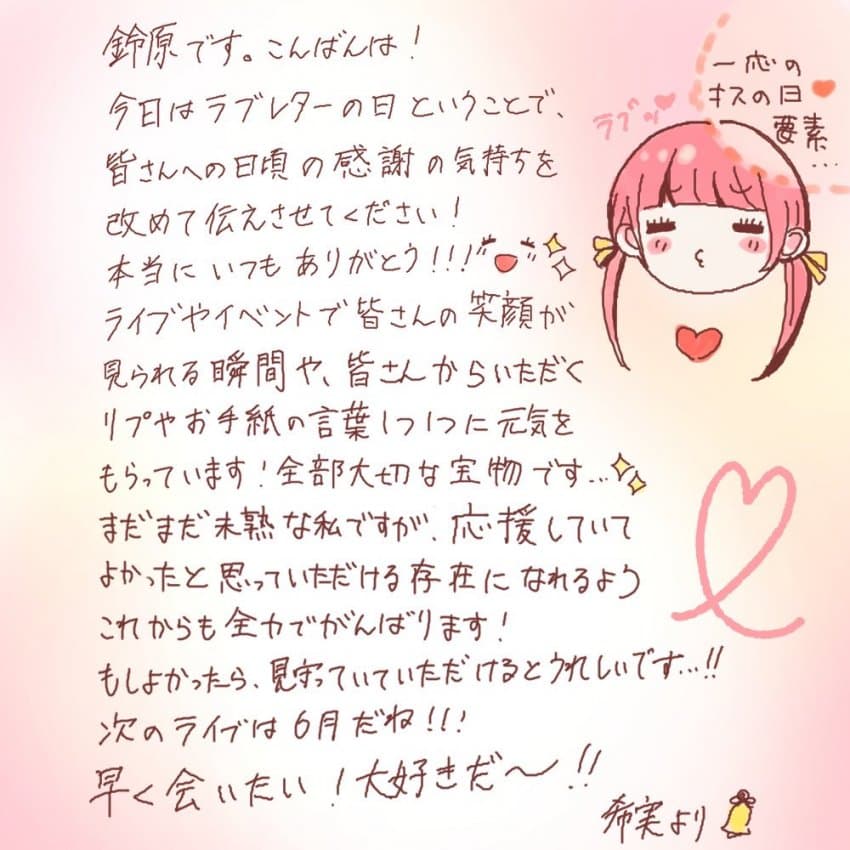 鈴原です。こんばんは！
今日はラブレターの日ということで、
皆さんへの日頃の感謝の気持ちを
改めて伝えさせてください！
本当にいつもありがとう!!!
ライブやイベントで皆さんの笑顔が
見られる瞬間や、皆さんからいただく
リプやお手紙の言葉1つ1つに元気を
もらっています！全部大切な宝物です...
まだまだ未熟な私ですが、応援していて
よかったと思っていただける存在になれるよう
これからも全力でがんばります！
もしよかったら、見守っていていただけるとうれしいです...!!
次のライブは6月だね!!!
早く会いたい！大好きだ〜!!
希実より
一応の
キスの日
要素...
ラブッ